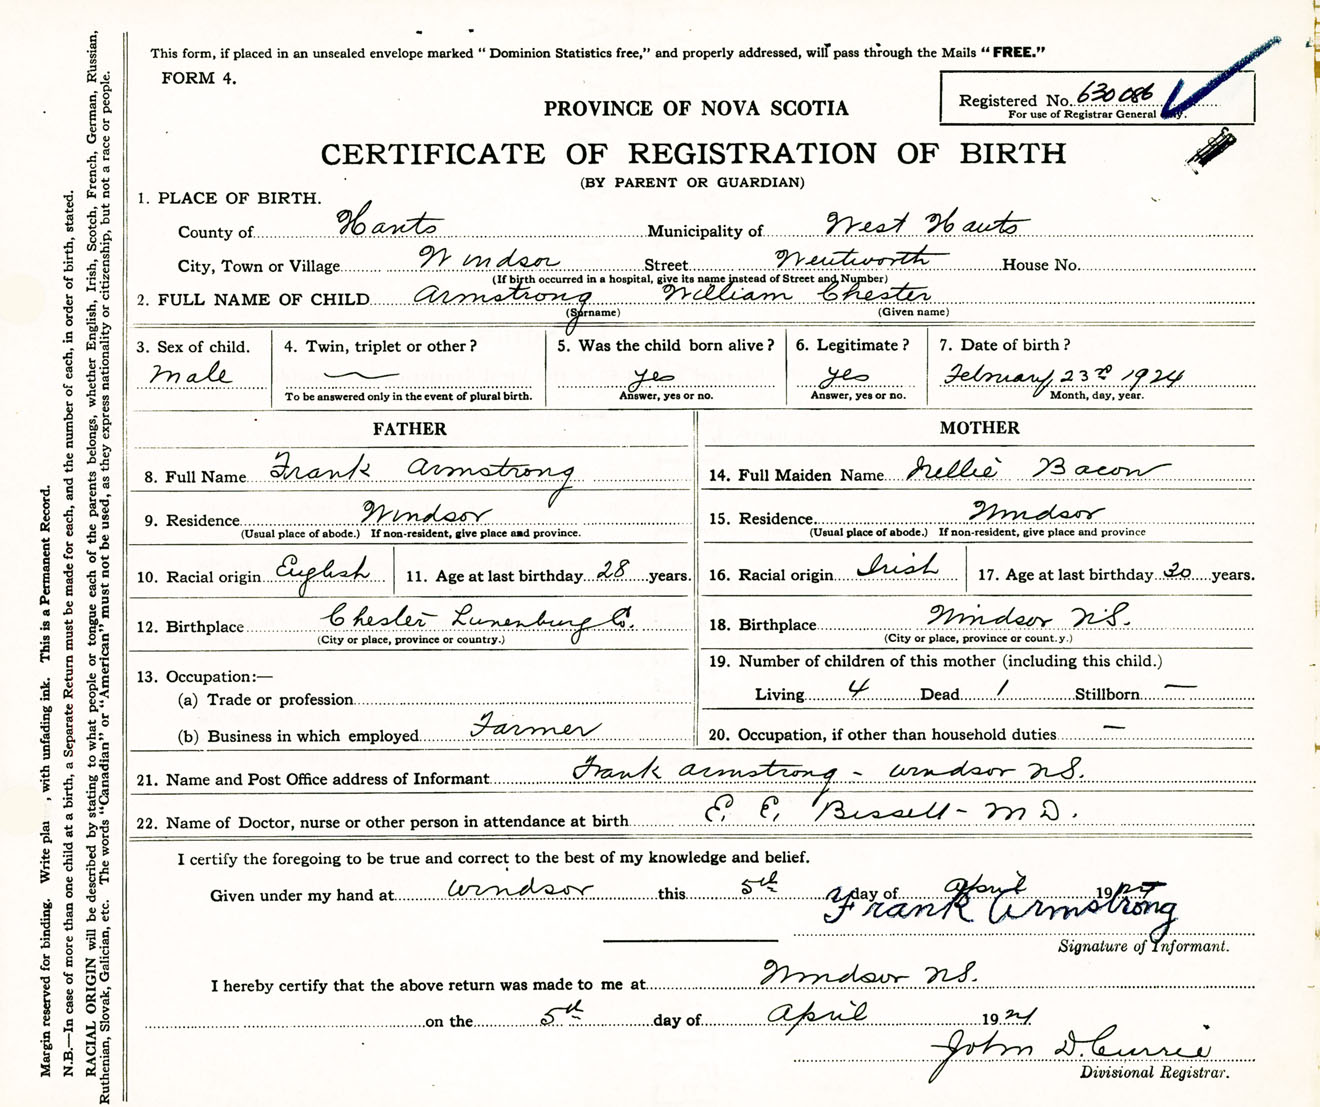 This form, if placed in an unsealed envelope marked " Dominion Statistics free," and properly addressed, will pass through the Mails " FREE."
FORM 4.
Registered No. 630086
For use of Registrar General
PROVINCE OF NOVA SCOTIA
CERTIFICATE OF REGISTRATION OF BIRTH
(BY PARENT OR GUARDIAN)
1. PLACE OF BIRTH.
County of Hants Municipality of West Hants
City, Town or Village Windsor Street Wentworth House No.
(If birth occurred in a hospital, give its name instead of Street and Number)
2. FULL NAME OF CHILD Armstrong William Chester
(Surname) (Given name)
3. Sex of child. 4. Twin, triplet or other? 5. Was the child born alive? 6. Legitimate? 7. Date of birth?
Male — yes yes February 23rd 1924
To be answered only in the event of plural birth. Answer, yes or no. Answer, yes or no. Month, day, year.
FATHER MOTHER
8. Full Name Frank Armstrong 14. Full Maiden Name Nellie Bacon
9. Residence Windsor 15. Residence Windsor
(Usual place of abode.) If non-resident, give place and province. (Usual place of abode.) If non-resident, give place and province
10. Racial origin English 11. Age at last birthday 28 years. 16. Racial origin Irish 17. Age at last birthday 30 years.
12. Birthplace Chester Lunenburg Co. 18. Birthplace Windsor N.S.
(City or place, province or country.) (City or place, province or count.y.)
13. Occupation:— 19. Number of children of this mother (including this child.)
(a) Trade or profession Living 4 Dead 1 Stillborn —
(b) Business in which employed Farmer 20. Occupation, if other than household duties —
21. Name and Post Office address of Informant Frank Armstrong - Windsor N.S.
22. Name of Doctor, nurse or other person in attendance at birth E. E. Bissell - M D.
I certify the foregoing to be true and correct to the best of my knowledge and belief.
Given under my hand at Windsor this 5th day of April 19
Frank Armstrong
Signature of Informant.
I hereby certify that the above return was made to me at Windsor N.S.
on the 5th day of April 1924
John D. Currie
Divisional Registrar.
Margin reserved for binding. Write , with unfading ink. This is a Permanent Record.
N.B.—In case of more than one child at a birth, a Separate Return must be made for each, and the number of each, in order of birth, stated.
RACIAL ORIGIN will be described by stating to what people or tongue each of the parents belongs, whether English, Irish, Scotch, French, German, Russian,
Ruthenian, Slovak, Galician, etc. The words "Canadian" or "American" must not be used, as they express nationality or citizenship, but not a race or people.